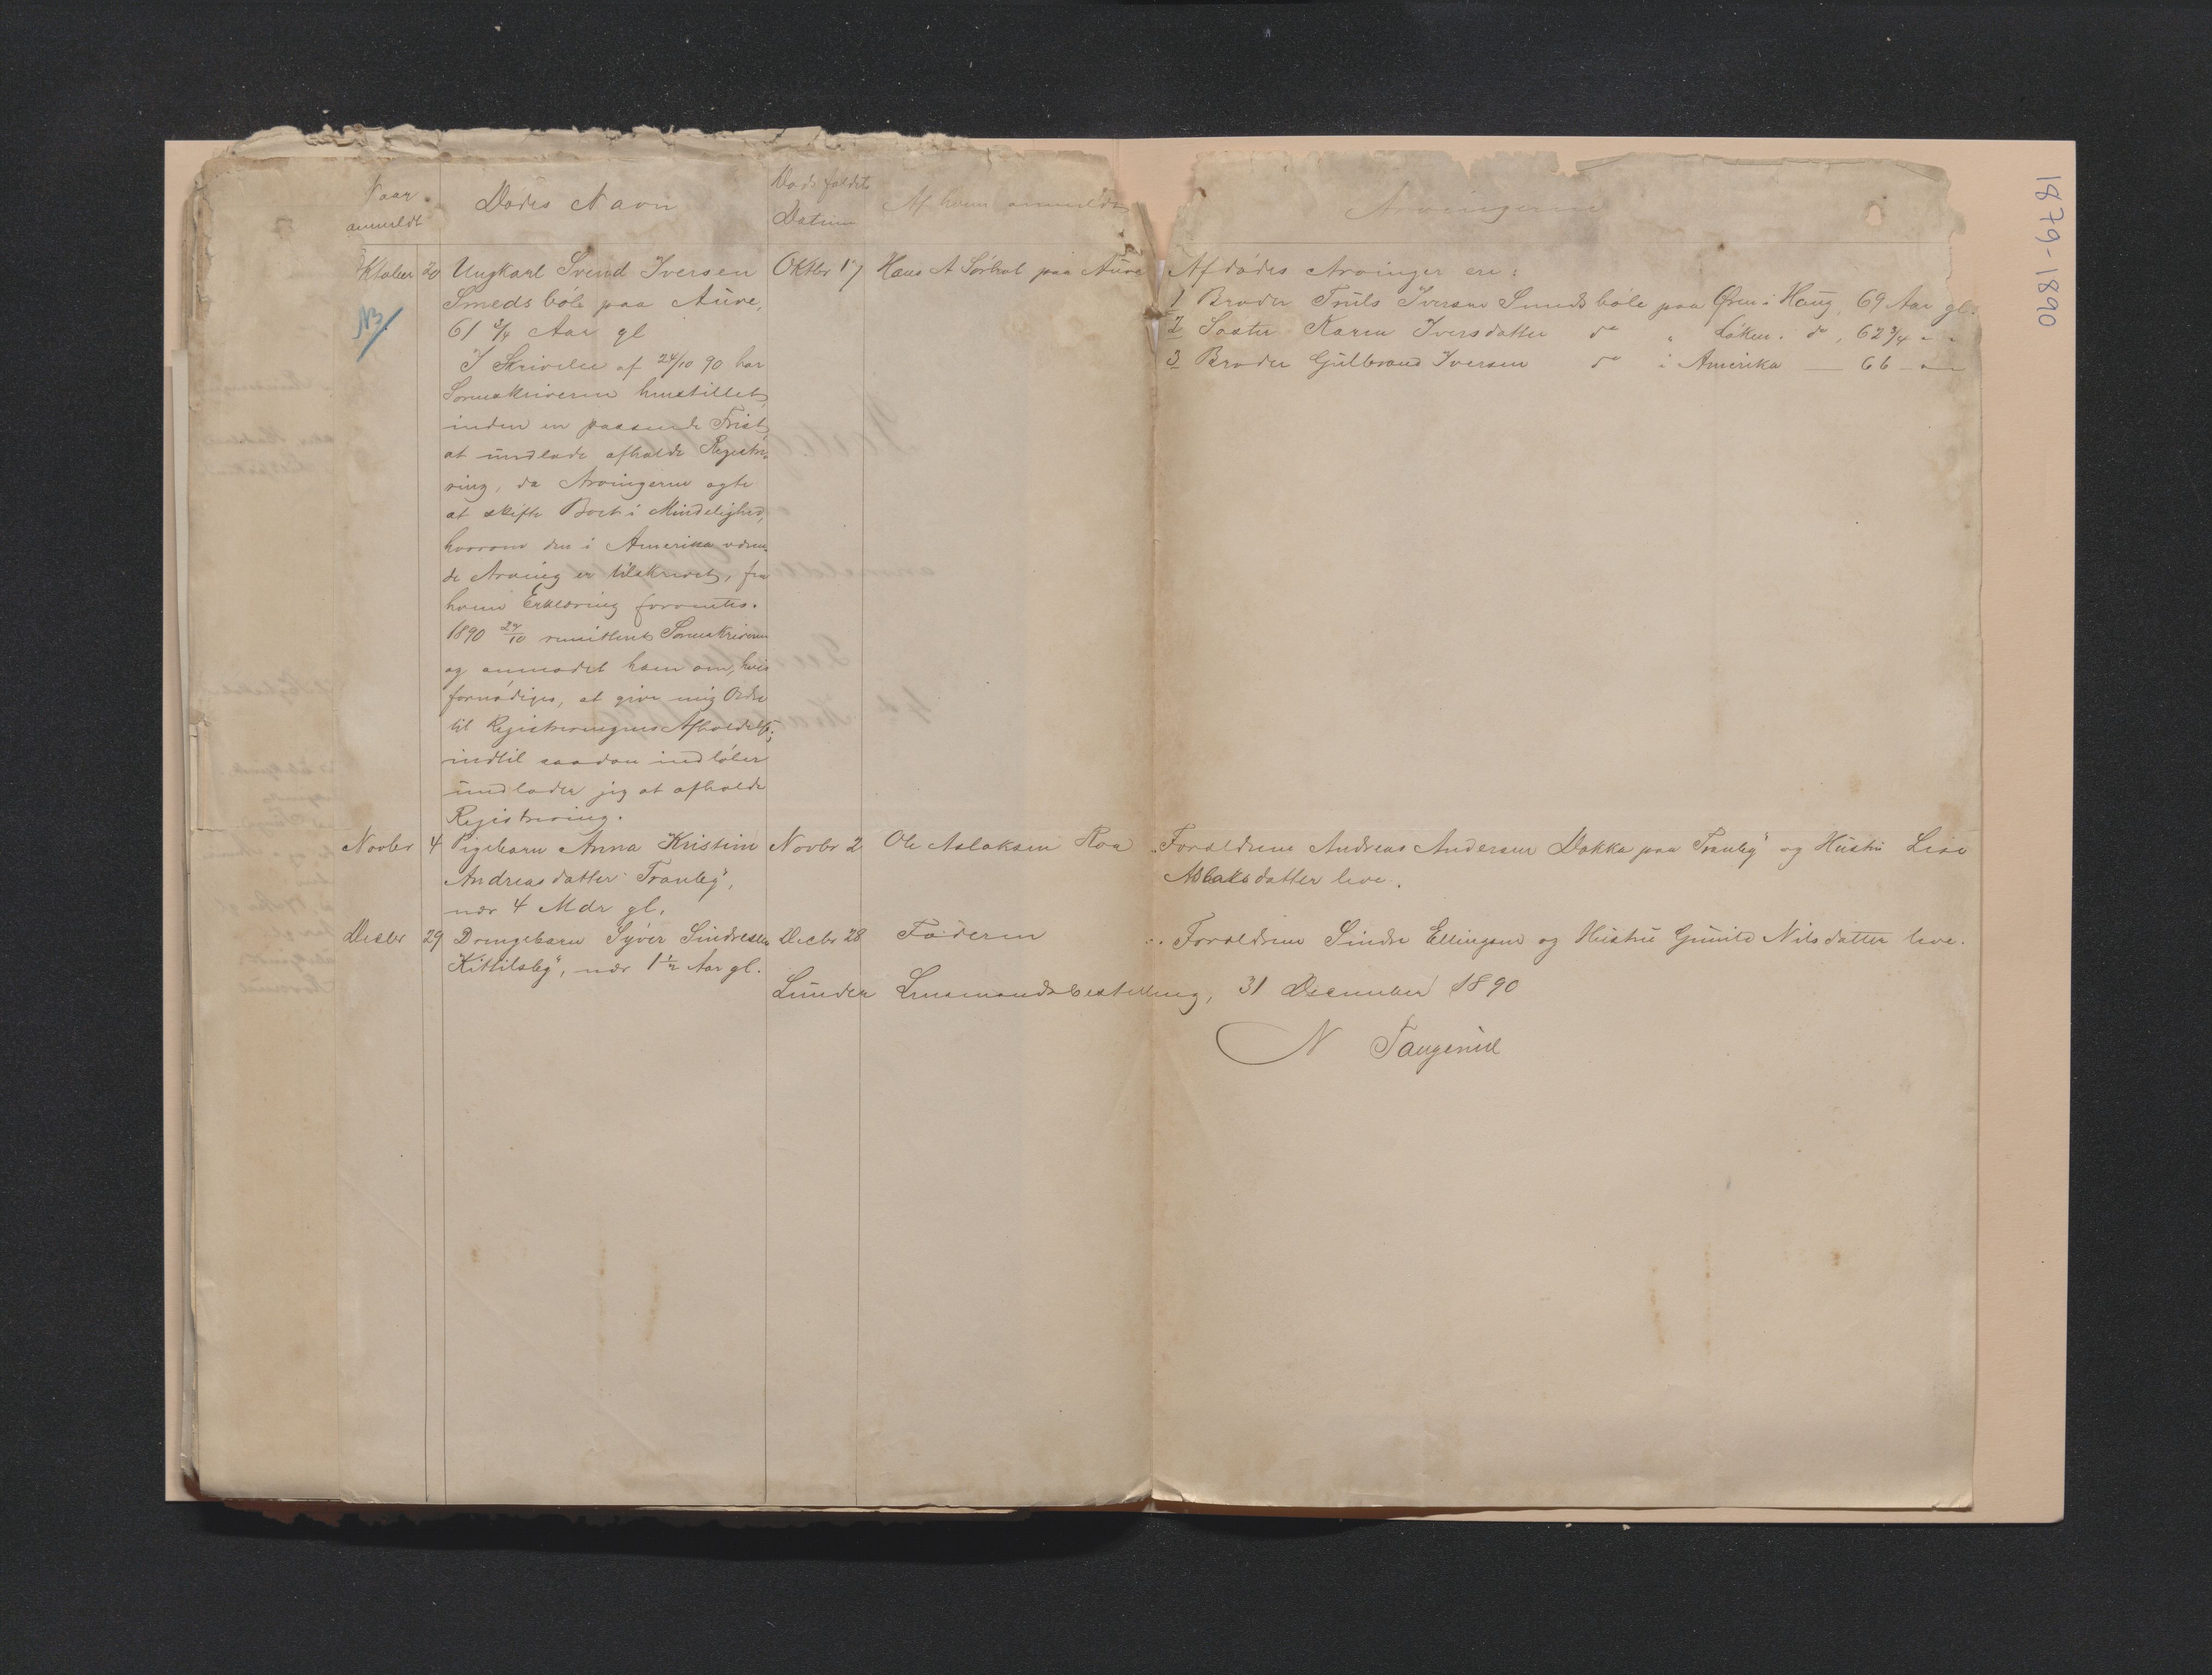 1879-1890
Naar anmeldt
Dødes Navn
Dødsfaldets Datum
Af hvem anmeldt
Arvingerne
Oktober 20 Ungkarl Svend Iversen Oktbr 17 Hans A Sørhol paa Aure Afdødes Arvinger ere:
NB
Smedsböle paa Aure,
61 3/4 Aar gl
1 Broder Truls Iversen Smedsböle paa Øren i Haug, 69 Aar gl.
2 Søster Karen Iversdatter do " Løken i do, 62 3/4 " "
3 Broder Gulbrand Iversen do i Amerika — 66 — " —
I Skrivelse af 24/10 90 har
Sorenskriveren henstillet,
inden en passende Frist
at undlade afholde Registre-
ring, da Arvingerne agte
at skifte Boet i Mindelighed,
hvorom den i Amerika væren-
de Arving er tilskrevet, fra
hvem Erklæring forventes.
1890 29/10 remitteret Sorenskriveren
og anmodet ham om, hvis
fornödiges, at give mig Ordre
til Registreringens Afholdelse;
indtil saadan indløber
undlader jeg at afholde
Registrering.
Novbr 4 Pigebarn Anna Kristine Novbr 2 Ole Aslaksen Roa Forældrene Andreas Andersen Dokka paa Tranby" og Hustru Lise
Andreasdatter Tranby",
Aslaksdatter leve.
nær 4 Mdr gl.
Decbr 29 Drengebarn Syver Sindresen Decbr 28 Faderen Forældrene Sindre Ellingsen og Hustru Gunild Nilsdatter leve.
Kittilsby", nær 1 1/2 Aar gl.
Lunder Lensmandsbestilling, 31 December 1890
N Taugerud